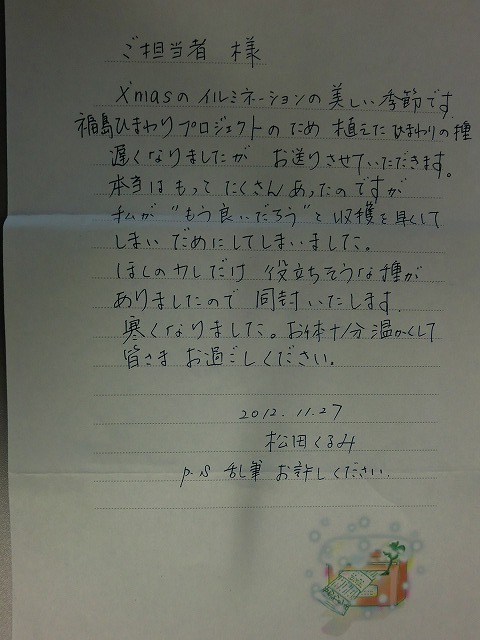 ご担当者 様
X'masのイルミネーションの美しい季節です
福島ひまわりプロジェクトのため 植えたひまわりの種
遅くなりましたが お送りさせていただきます。
本当はもってたくさんあったのですが
私が"もう良いだろう"と収穫を早くして
しまい だめにしてしまいました。
ほんの少しだけ 役立ちそうな種が
ありましたので 同封いたします.
寒くなりました。お体十分温かくして
皆さま お過ごしください.
2012.11.27
松田くるみ
p.s 乱筆 お許しください.